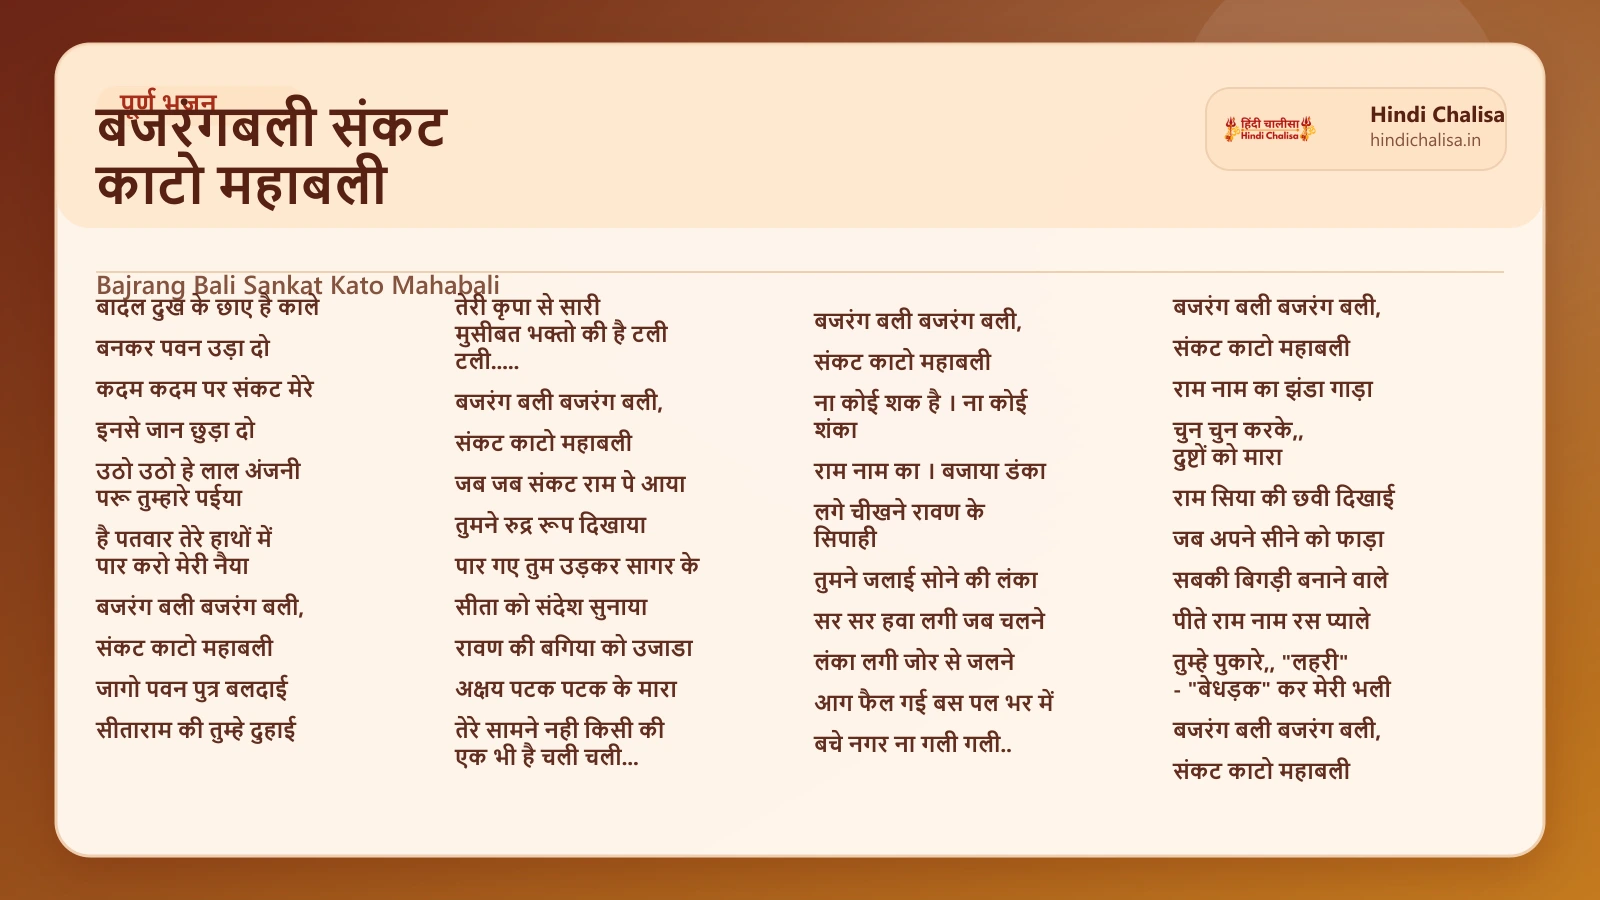 पूर्ण भजन
बजरंगबली संकट
काटो महाबली
हिंदी चालीसा
Hindi Chalisa
Hindi Chalisa
hindichalisa.in
Bajrang Bali Sankat Kato Mahabali
बादल दुख के छाए है काले
बनकर पवन उड़ा दो
कदम कदम पर संकट मेरे
इनसे जान छुड़ा दो
उठो उठो हे लाल अंजनी
परू तुम्हारे पईया
है पतवार तेरे हाथों में
पार करो मेरी नैया
बजरंग बली बजरंग बली,
संकट काटो महाबली
जागो पवन पुत्र बलदाई
सीताराम की तुम्हे दुहाई
तेरी कृपा से सारी
मुसीबत भक्तो की है टली
टली.....
बजरंग बली बजरंग बली,
संकट काटो महाबली
जब जब संकट राम पे आया
तुमने रुद्र रूप दिखाया
पार गए तुम उड़कर सागर के
सीता को संदेश सुनाया
रावण की बगिया को उजाडा
अक्षय पटक पटक के मारा
तेरे सामने नही किसी की
एक भी है चली चली...
बजरंग बली बजरंग बली,
संकट काटो महाबली
ना कोई शक है । ना कोई
शंका
राम नाम का । बजाया डंका
लगे चीखने रावण के
सिपाही
तुमने जलाई सोने की लंका
सर सर हवा लगी जब चलने
लंका लगी जोर से जलने
आग फैल गई बस पल भर में
बचे नगर ना गली गली..
बजरंग बली बजरंग बली,
संकट काटो महाबली
राम नाम का झंडा गाड़ा
चुन चुन करके,,
दुष्टों को मारा
राम सिया की छवी दिखाई
जब अपने सीने को फाड़ा
सबकी बिगड़ी बनाने वाले
पीते राम नाम रस प्याले
तुम्हे पुकारे,, "लहरी"
- "बेधड़क" कर मेरी भली
बजरंग बली बजरंग बली,
संकट काटो महाबली